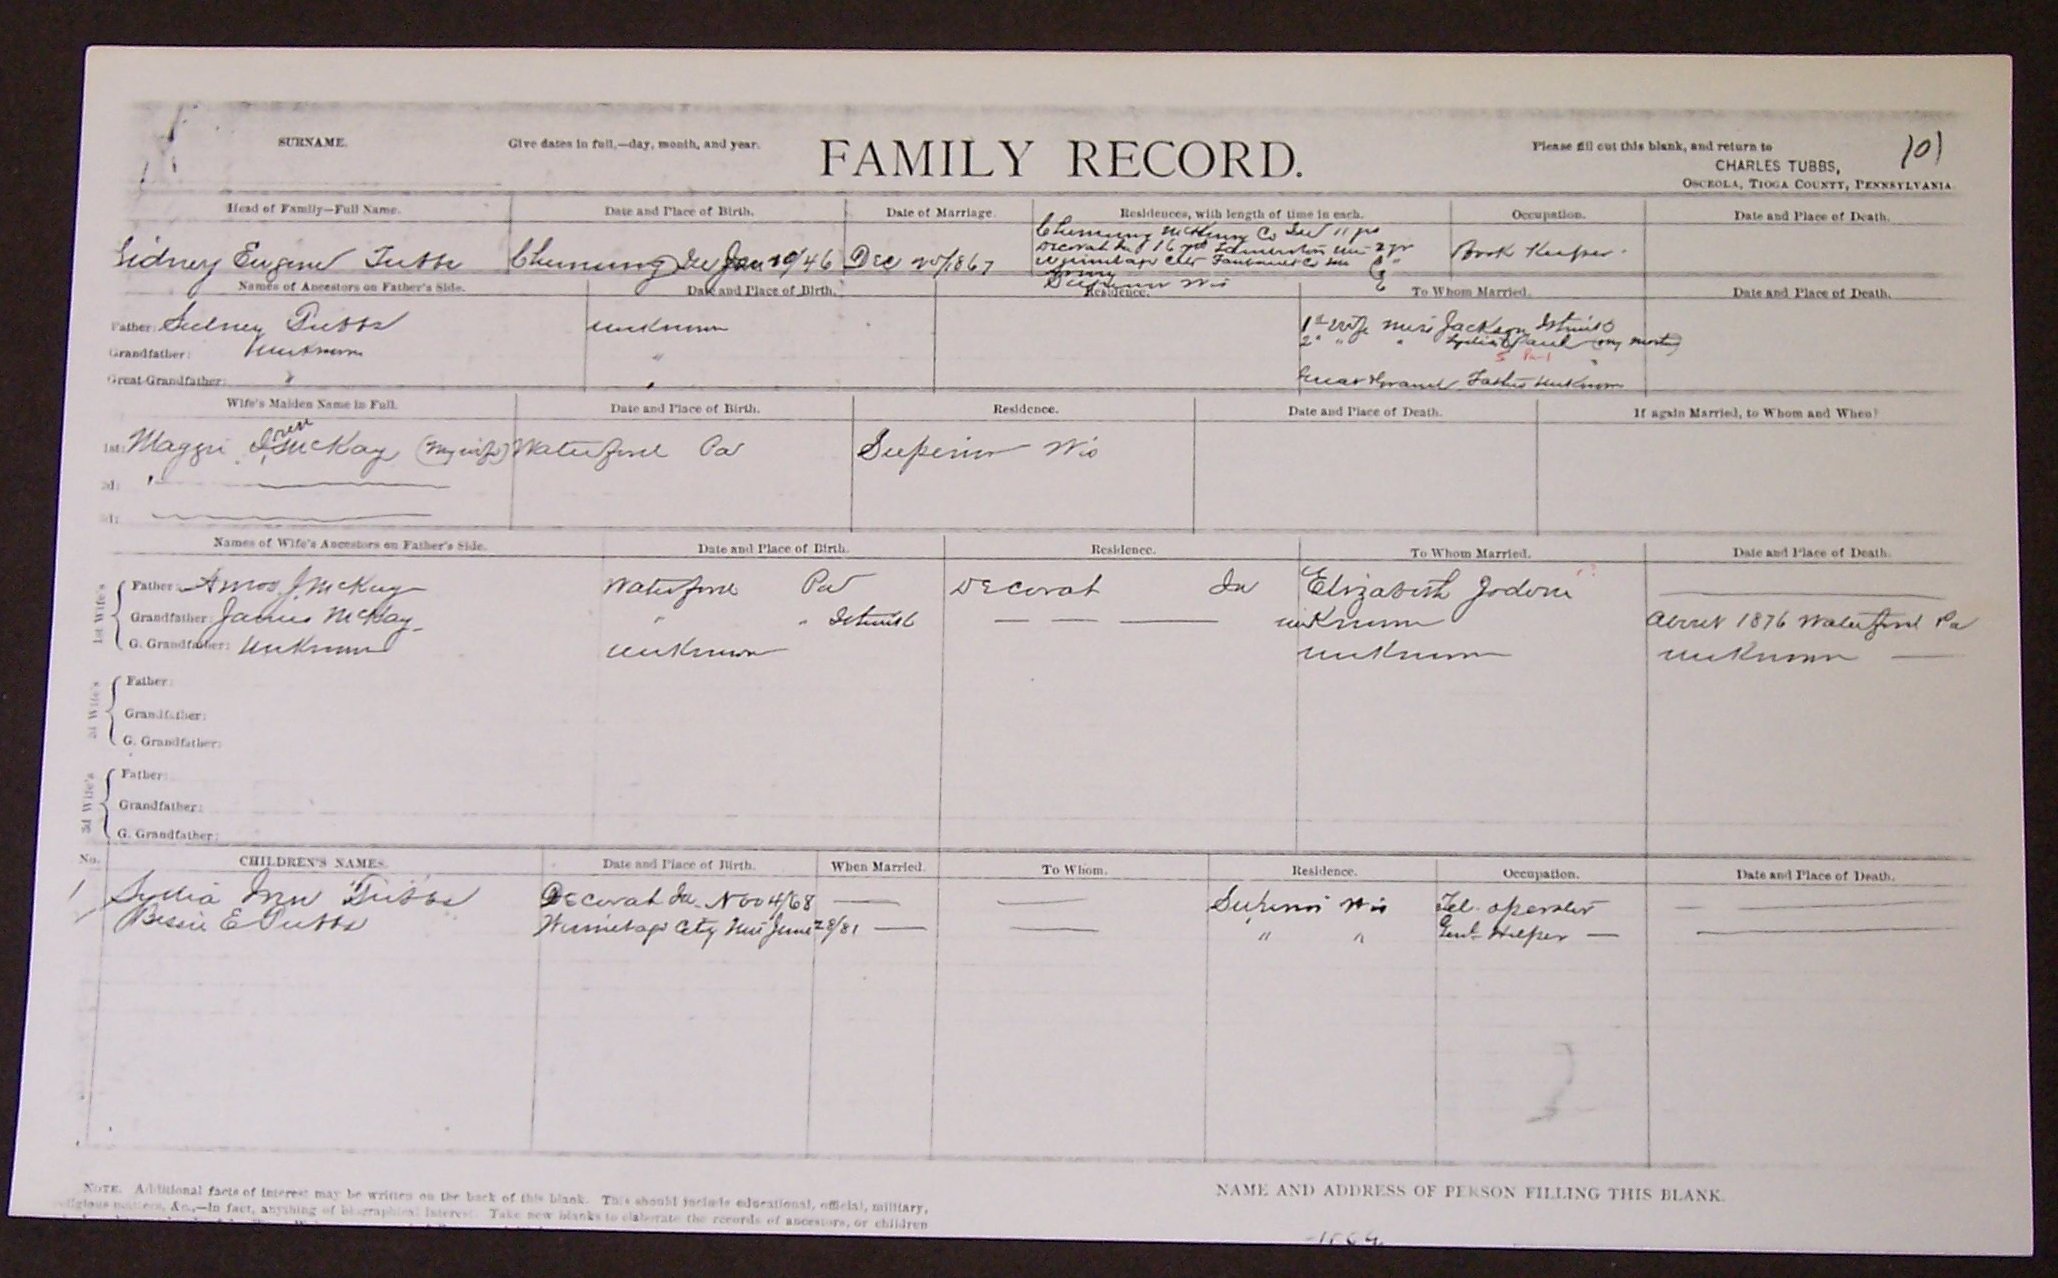 SURNAME.
Give dates in full,—day, month, and year.
FAMILY RECORD.
Please fill out this blank, and return to
CHARLES TUBBS,
OSCEOLA, TIOGA COUNTY, PENNSYLVANIA
101
Head of Family—Full Name. Date and Place of Birth. Date of Marriage. Residences, with length of time in each. Occupation. Date and Place of Death.
Chemung McHenry Co Ill 11 yrs
Decorah Ia 16 yrs
Sidney Eugene Tubbs Chemung Ill Jan 10/46 Dec 25/1867 Book Keeper
Winnebago City Faribault Co
Superior Wis
Names of Ancestors on Father's Side. Date and Place of Birth. Residence. To Whom Married. Date and Place of Death.
Father: Sidney Tubbs unknown 1st wife Miss Jackson
Grandfather: Unknown " 2d " "
Great-Grandfather: " " Great Grand Father unknown
Wife's Maiden Name in Full. Date and Place of Birth. Residence. Date and Place of Death. If again Married, to Whom and When?
1st: Maggie McKay (my wife) Waterford Pa Superior Wis
2d:
3d:
Names of Wife's Ancestors on Father's Side. Date and Place of Birth. Residence. To Whom Married. Date and Place of Death.
1st Wife's
Father: Amos J. McKay Waterford Pa Decorah Ia Elizabeth
Grandfather: James McKay " " unKnown About 1876 Waterford Pa
G. Grandfather: UnKnown unKnown unKnown unKnown
2d Wife's
Father:
Grandfather:
G. Grandfather:
3d Wife's
Father:
Grandfather:
G. Grandfather:
No. CHILDREN'S NAMES. Date and Place of Birth. When Married. To Whom. Residence. Occupation. Date and Place of Death.
1 Lydia Tubbs Decorah Ia. Nov 4/68 Superior Wis Tel. operator
Bessie E Tubbs Winnebago City June 28/81 " " Helper
NOTE. Additional facts of interest may be written on the back of this blank. This should include educational, official, military,
religious matters, &c.,—in fact, anything of biographical interest. Take new blanks to elaborate the records of ancestors, or children
NAME AND ADDRESS OF PERSON FILLING THIS BLANK.